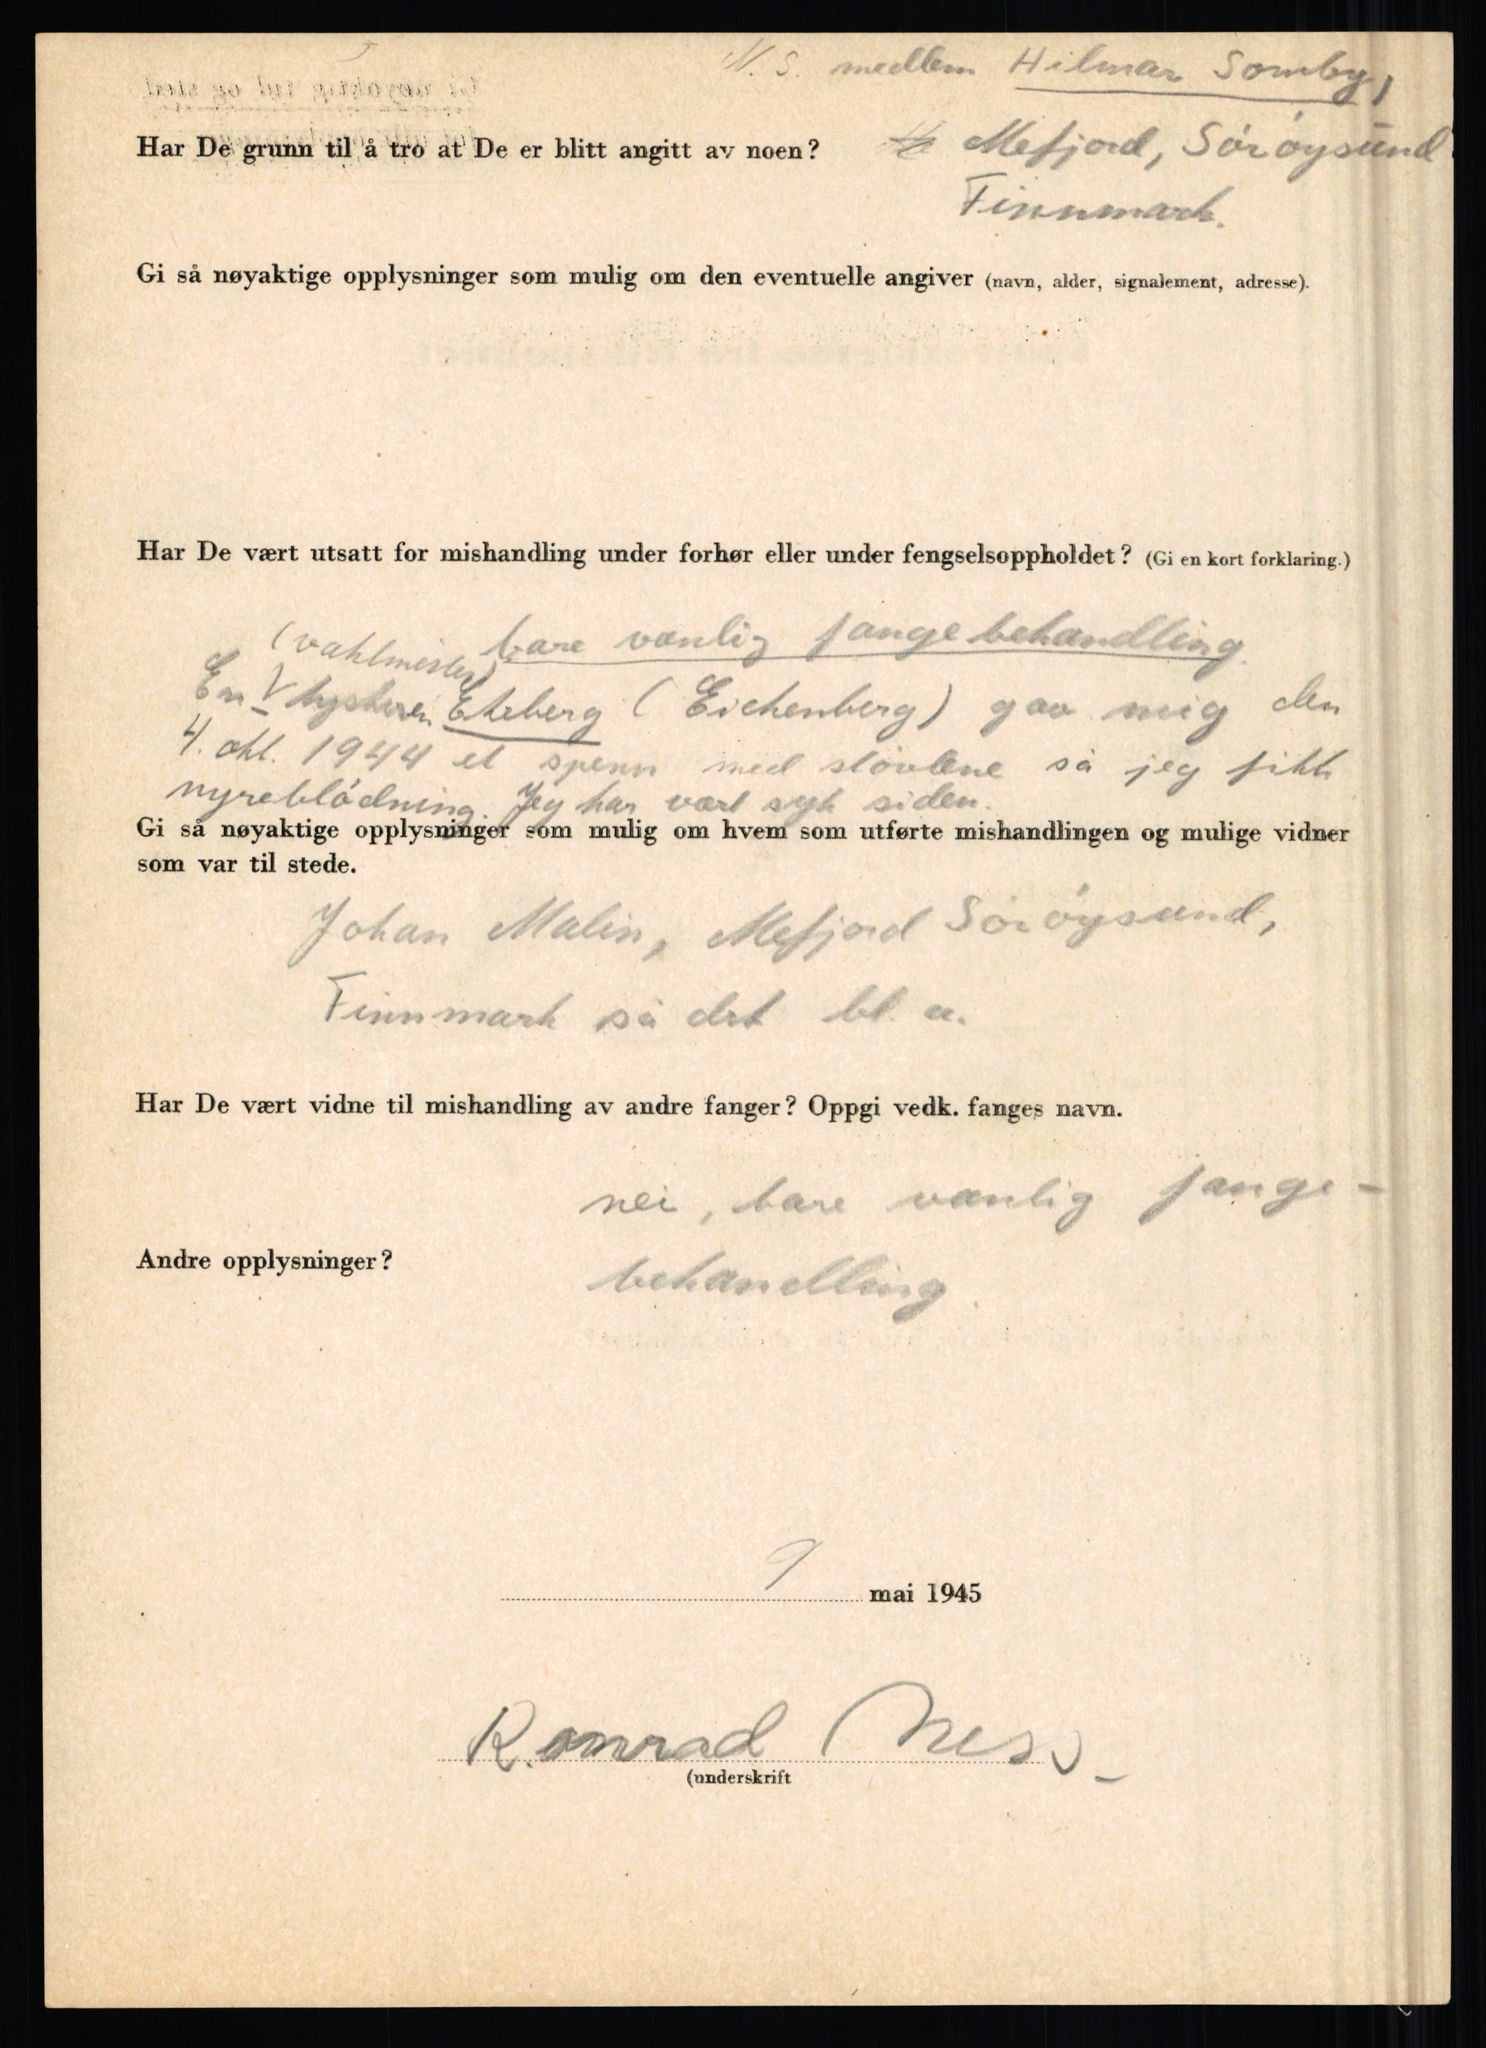 N.S. medlem Hilmar Somby,
Har De grunn til å tro at De er blitt angitt av noen?
Mefjord, Sørøysund
Finnmark.
Gi så nøyaktige opplysninger som mulig om den eventuelle angiver (navn, alder, signalement, adresse).
Har De vært utsatt for mishandling under forhør eller under fengselsoppholdet? (Gi en kort forklaring.)
bare vanlig fangebehandling.
(vahlmister)
En tyskeren Ekeberg (Eichenberg) gav mig den
4. okt. 1944 et spenn med støvlene så jeg fikk
nyreblødning. Jeg har vært syk siden.
Gi så nøyaktige opplysninger som mulig om hvem som utførte mishandlingen og mulige vidner
som var til stede.
Johan Malin, Mefjord Sørøysund,
Finnmark så det bl. a.
Har De vært vidne til mishandling av andre fanger? Oppgi vedk. fanges navn.
nei, bare vanlig fange-
Andre opplysninger?
behandling.
9 mai 1945
Konrad Ness
(underskrift